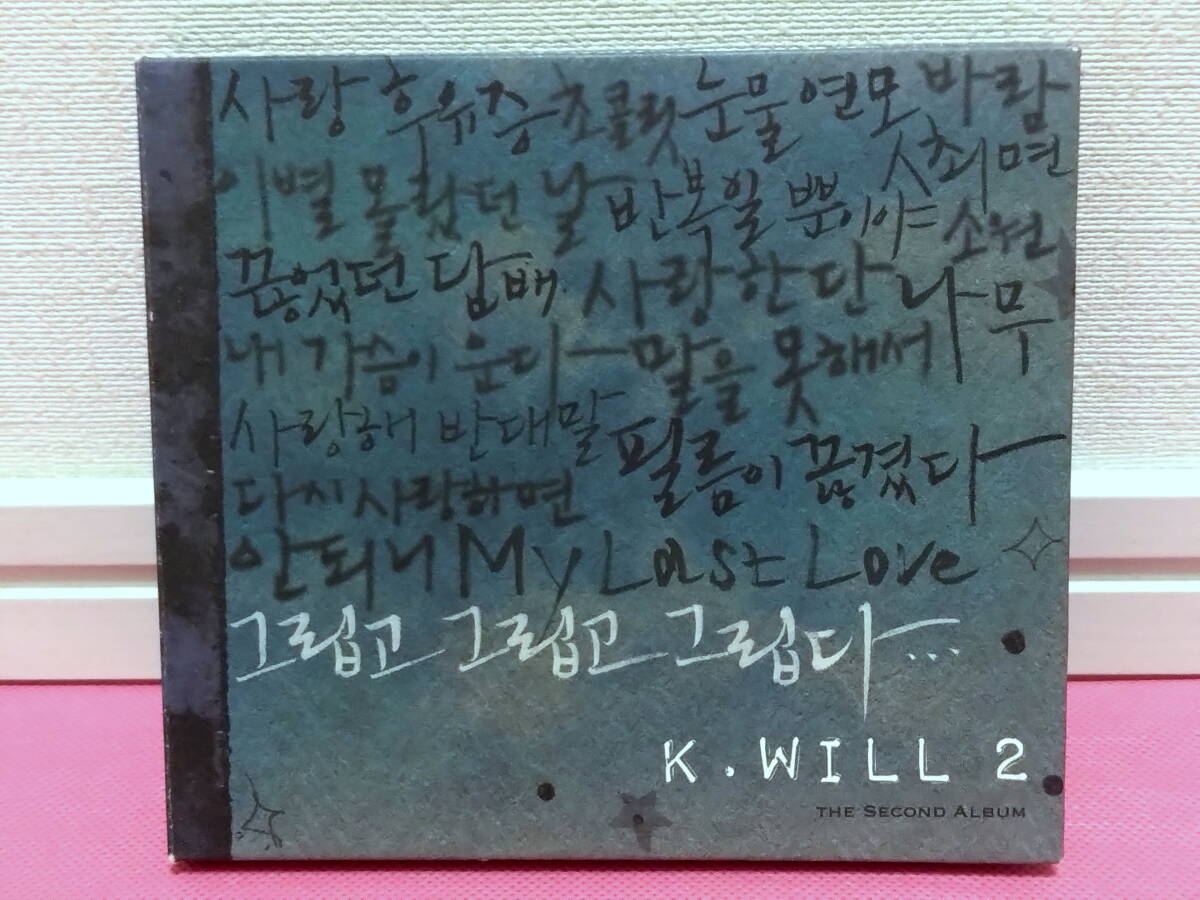 사랑 후유증 초콜릿 눈물 연모 바람
이별 몰랐던 날 반복일 뿐이야 최면
끊었던 담배 사랑한단 나무 소원
내 가슴이 운다 말을 못해서
사랑해 반대말 필름이 끊겼다
다시 사랑하면
안되니 My Last Love
그립고 그립고 그립다...
K.WILL 2
THE SECOND ALBUM